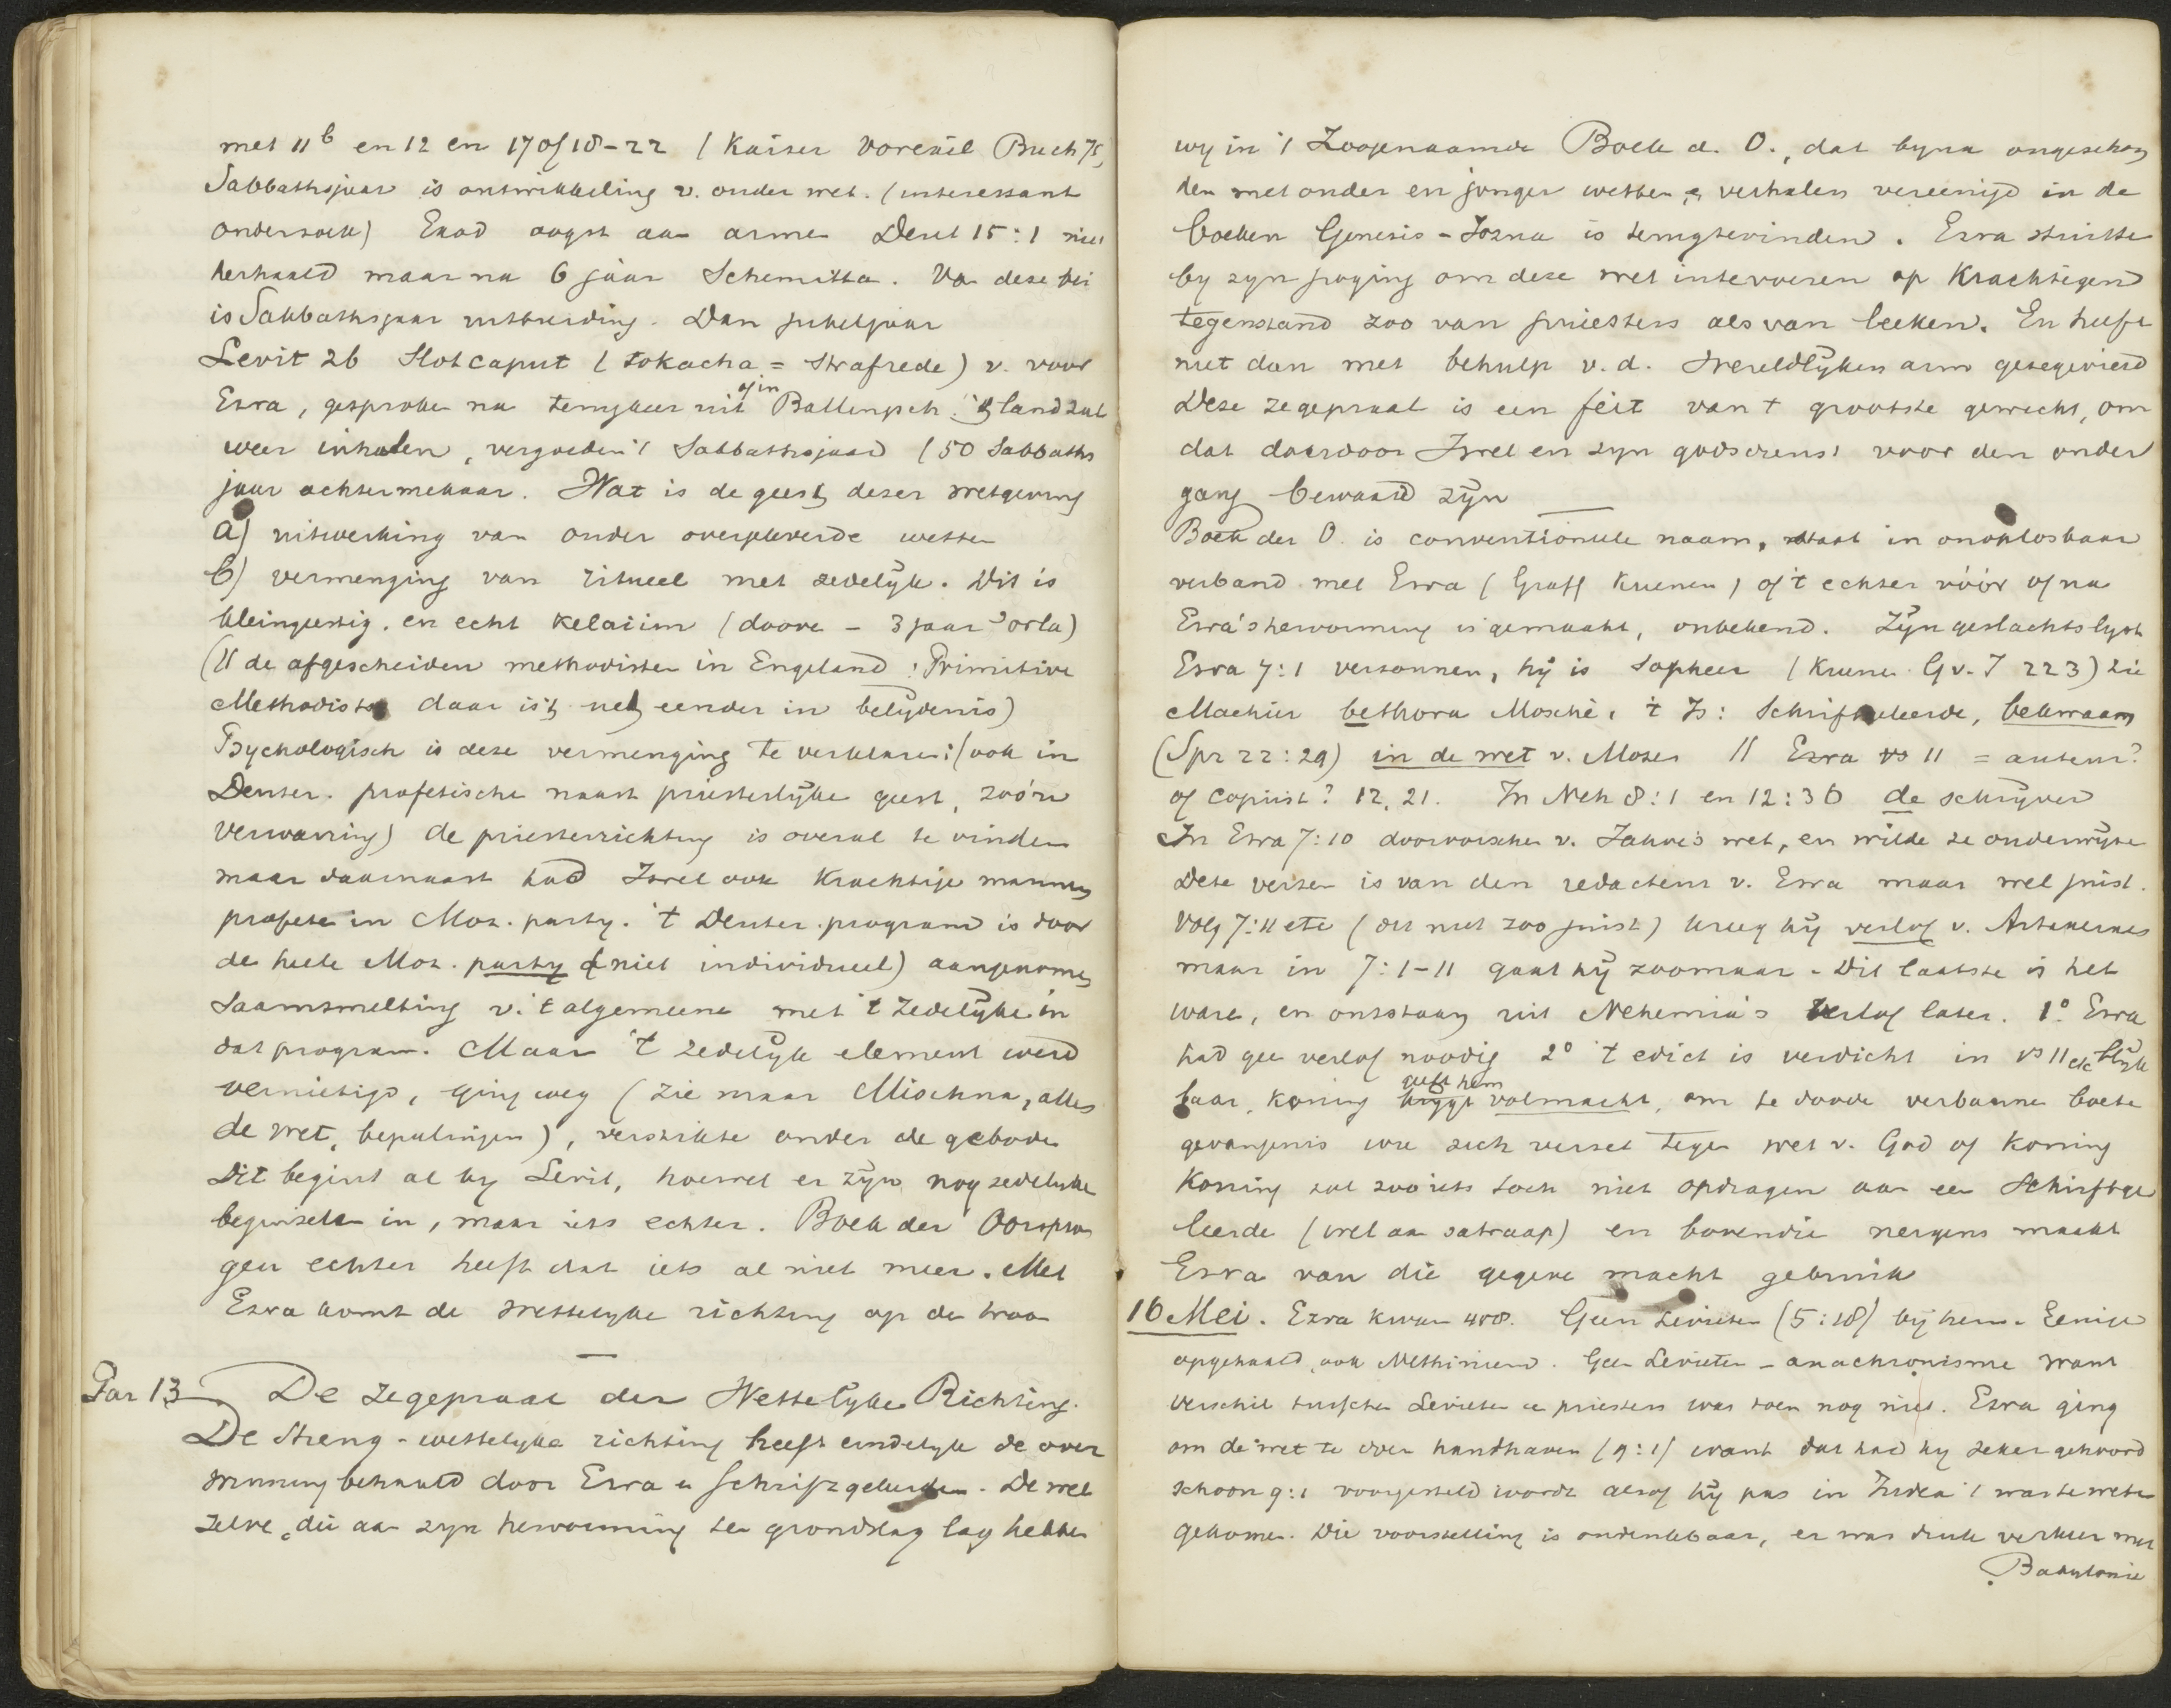 met 11b en 12 en 17 of 18-22 (Kaiser Vorexil Buch 75,
Sabbathsjaar is ontwikkeling v. ouder wet. (interessant
onderzoek) Exod oogst aan armen Deut 15:1 niet
herhaald maar na 6 jaar Schemitta. Van deze bei
is Sabbathsjaar uitbreiding. Dan jubeljaar
Levit 26 Slotcaput (tokacha = strafrede) v. voor
Ezra, gesproken na terugkeer uit of in Ballingsch. 't land zal
weer inhalen, vergoeden 't Sabbathsjaar (50 Sabbaths
jaar achtermekaar. Wat is de geest dezer wetgeving
a) uitwerking van ouder overgeleverde wetten
b) vermenging van ritueel met zedelijk. Dit is
kleingeestig. en echt kelaiim (doove - 3 jaar 'orla)
(11 de afgescheiden methodisten in Engeland: Primitive
Methodists daar is 't net eender in belijdenis)
Psychologisch is deze vermenging te verklaren: (ook in
Deuter. profetische naast priesterlijke geest, zoo'n
verwarring) de priesterrichting is overal te vinden
maar daarnaast had Isrel ook krachtige mannen
profeten in Moz. party. 't Deuter. program is door
de heele Moz. party (niet individueel) aangenomen
Saamsmelting v. 't algemeene met 't zedelijke in
dat program. Maar 't zedelijk element werd
vernietigd, ging weg (zie maar Mischna, alles
de wet, bepalingen), verstikte onder de geboden
Dit begint al by Levit, hoewel er zijn nog zedelyke
beginselen in, maar iets echter. Boek der Oorspron
gen echter heeft dat iets al niet meer. Met
Ezra komt de wettelyke richting op de troon
Par 13. De zegepraal der Wettelyke Richting.
De Streng-wettelyke richting heeft eindelyk de over
winning behaald door Ezra en Schriftgeleerden. De wet
zelve, die aan zyn hervorming ten grondslag lag hebben
wy in 't Zoogenaamde Boek d. O., dat byna ongeschon
den met ouder en jonger wetten en verhalen vereenigd in de
boeken Genesis-Jozua is terugtevinden. Ezra stuitte
by zyn poging om deze wet intevoeren op krachtigend
tegenstand zoo van priesters als van leeken. En heeft
niet dan met behulp v. d. wereldlijken arm gezegevierd
Deze zegepraal is een feit van 't grootste gewicht, om
dat daardoor Isrel en zyn godsdienst voor den onder
gang bewaard zijn
Boek der O. is conventioneele naam, staat in onoplosbaar
verband met Ezra (Graff Kuenen) of 't echter vóór of na
Ezra's hervorming is gemaakt, onbekend. Zijn geslachtslyst
Ezra 7:1 verzonnen, hij is sopheer (Kuenen G v. I 223) zie
Machir bethora Mosché, 't Is: Schriftgeleerde, bekwaam
(Spr 22:29) in de wet v. Mozes 11 Ezra vs 11 = auteur?
of copiist? 12, 21. In Neh 8:1 en 12:36 de schrijver
In Ezra 7:10 doorvorscher v. Jahve's wet, en wilde ze onderwijzen
Deze verzen is van den redacteur v. Ezra maar wel juist.
Volg 7:11 etc (dit niet zoo juist) kreeg hij verlof v. Artaxerxes
maar in 7:1-11 gaat hij zoomaar. Dit laatste is het
ware, en ontstaan uit Nehemia's verlof later. 1° Ezra
had geen verlof noodig 2° 't edict is verdicht in vs 11 etc blijk
baar, koning geeft hem volmacht, om te dooden verbannen boete
gevangenis wie zich verzet tegen wet v. God of koning
Koning zal zooiets toch niet opdragen aan een Schriftge
leerde (wel aan satraap) en bovendien nergens maakt
Ezra van die gegeven macht gebruik
16 Mei. Ezra kwam 458. Geen Levieten (5:18) bij hem. Eenige
opgehaald, ook Nethinieren. Geen Levieten - anachronisme want
verschil tusschen Levieten en priesters was toen nog niet. Ezra ging
om de wet te doen handhaven (9:1) want dat had hy zeker gehoord
schoon 9:1 voorgesteld wordt alsof hij pas in Judea 't was te weten
gekomen. Die voorstelling is ondenkbaar, er was druk verkeer met
Babylonie